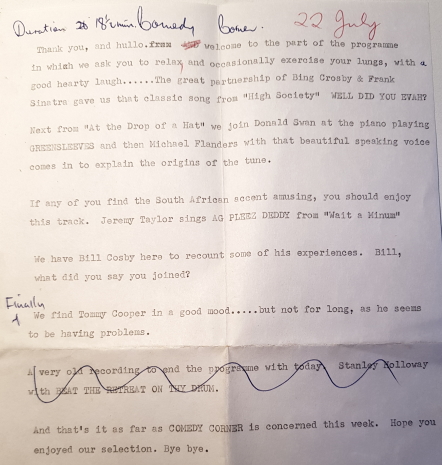 Duration 18½ min. Comedy Corner. 22 July
Thank you, and hullo.from welcome to the part of the programme
in which we ask you to relax, and occasionally exercise your lungs, with a
good hearty laugh......The great partnership of Bing Crosby & Frank
Sinatra gave us that classic song from "High Society" WELL DID YOU EVAH?
Next from "At the Drop of a Hat" we join Donald Swan at the piano playing
GREENSLEEVES and then Michael Flanders with that beautiful speaking voice
comes in to explain the origins of the tune.
If any of you find the South African accent amusing, you should enjoy
this track. Jeremy Taylor sings AG PLEEZ DEDDY from "Wait a Minum"
We have Bill Cosby here to recount some of his experiences. Bill,
what did you say you joined?
Finally
We find Tommy Cooper in a good mood.....but not for long, as he seems
to be having problems.
A very old recording to end the programme with today. Stanley Holloway
with BEAT THE RETREAT ON THY DRUM.
And that's it as far as COMEDY CORNER is concerned this week. Hope you
enjoyed our selection. Bye bye.